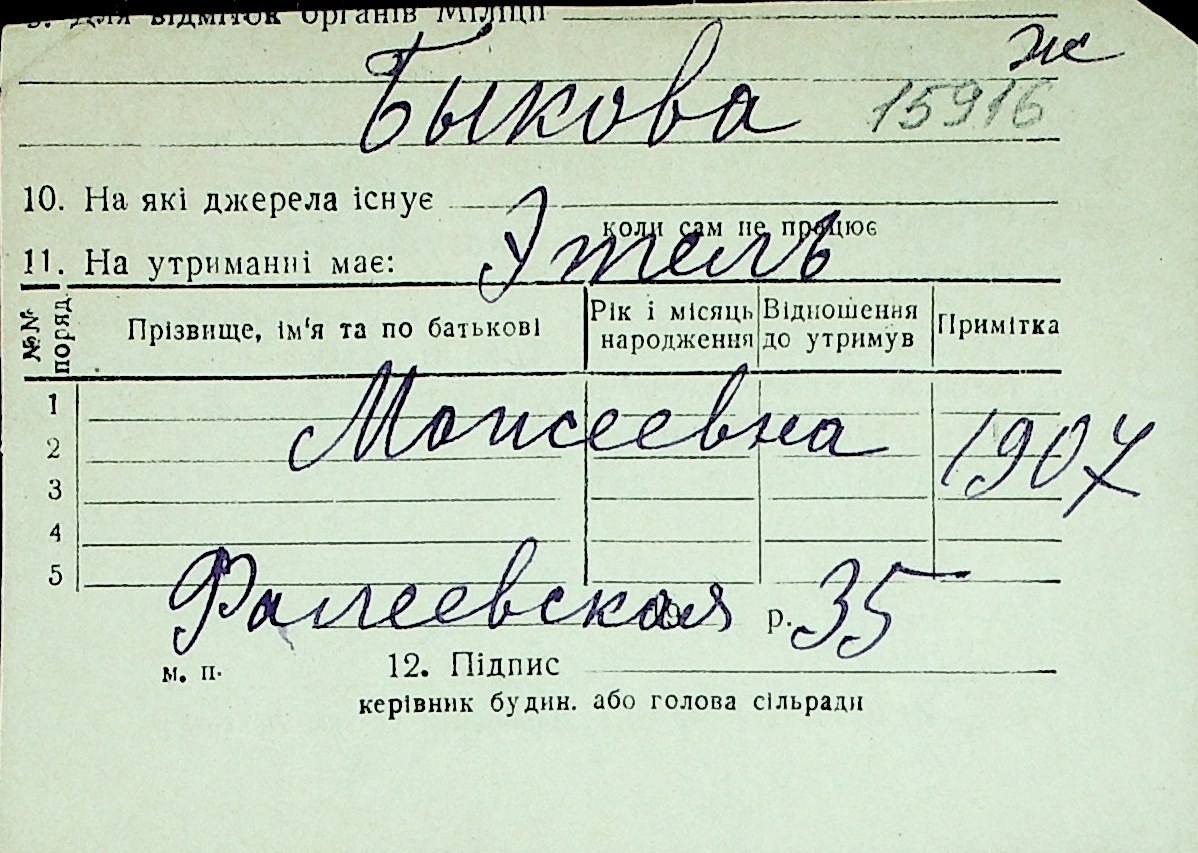 9. Для відміток органів Міліції
ж
Быкова 15916
10. На які джерела існує
коли сам не працює
Этель
11. На утриманні має:
№№ поряд. Прізвище, ім'я та по батькові Рік і місяць народження Відношення до утримув Примітка
1
Моисеевна 1907
2
3
4
5
Фалеевская р. 35
м. п. 12. Підпис
керівник будин. або голова сільради